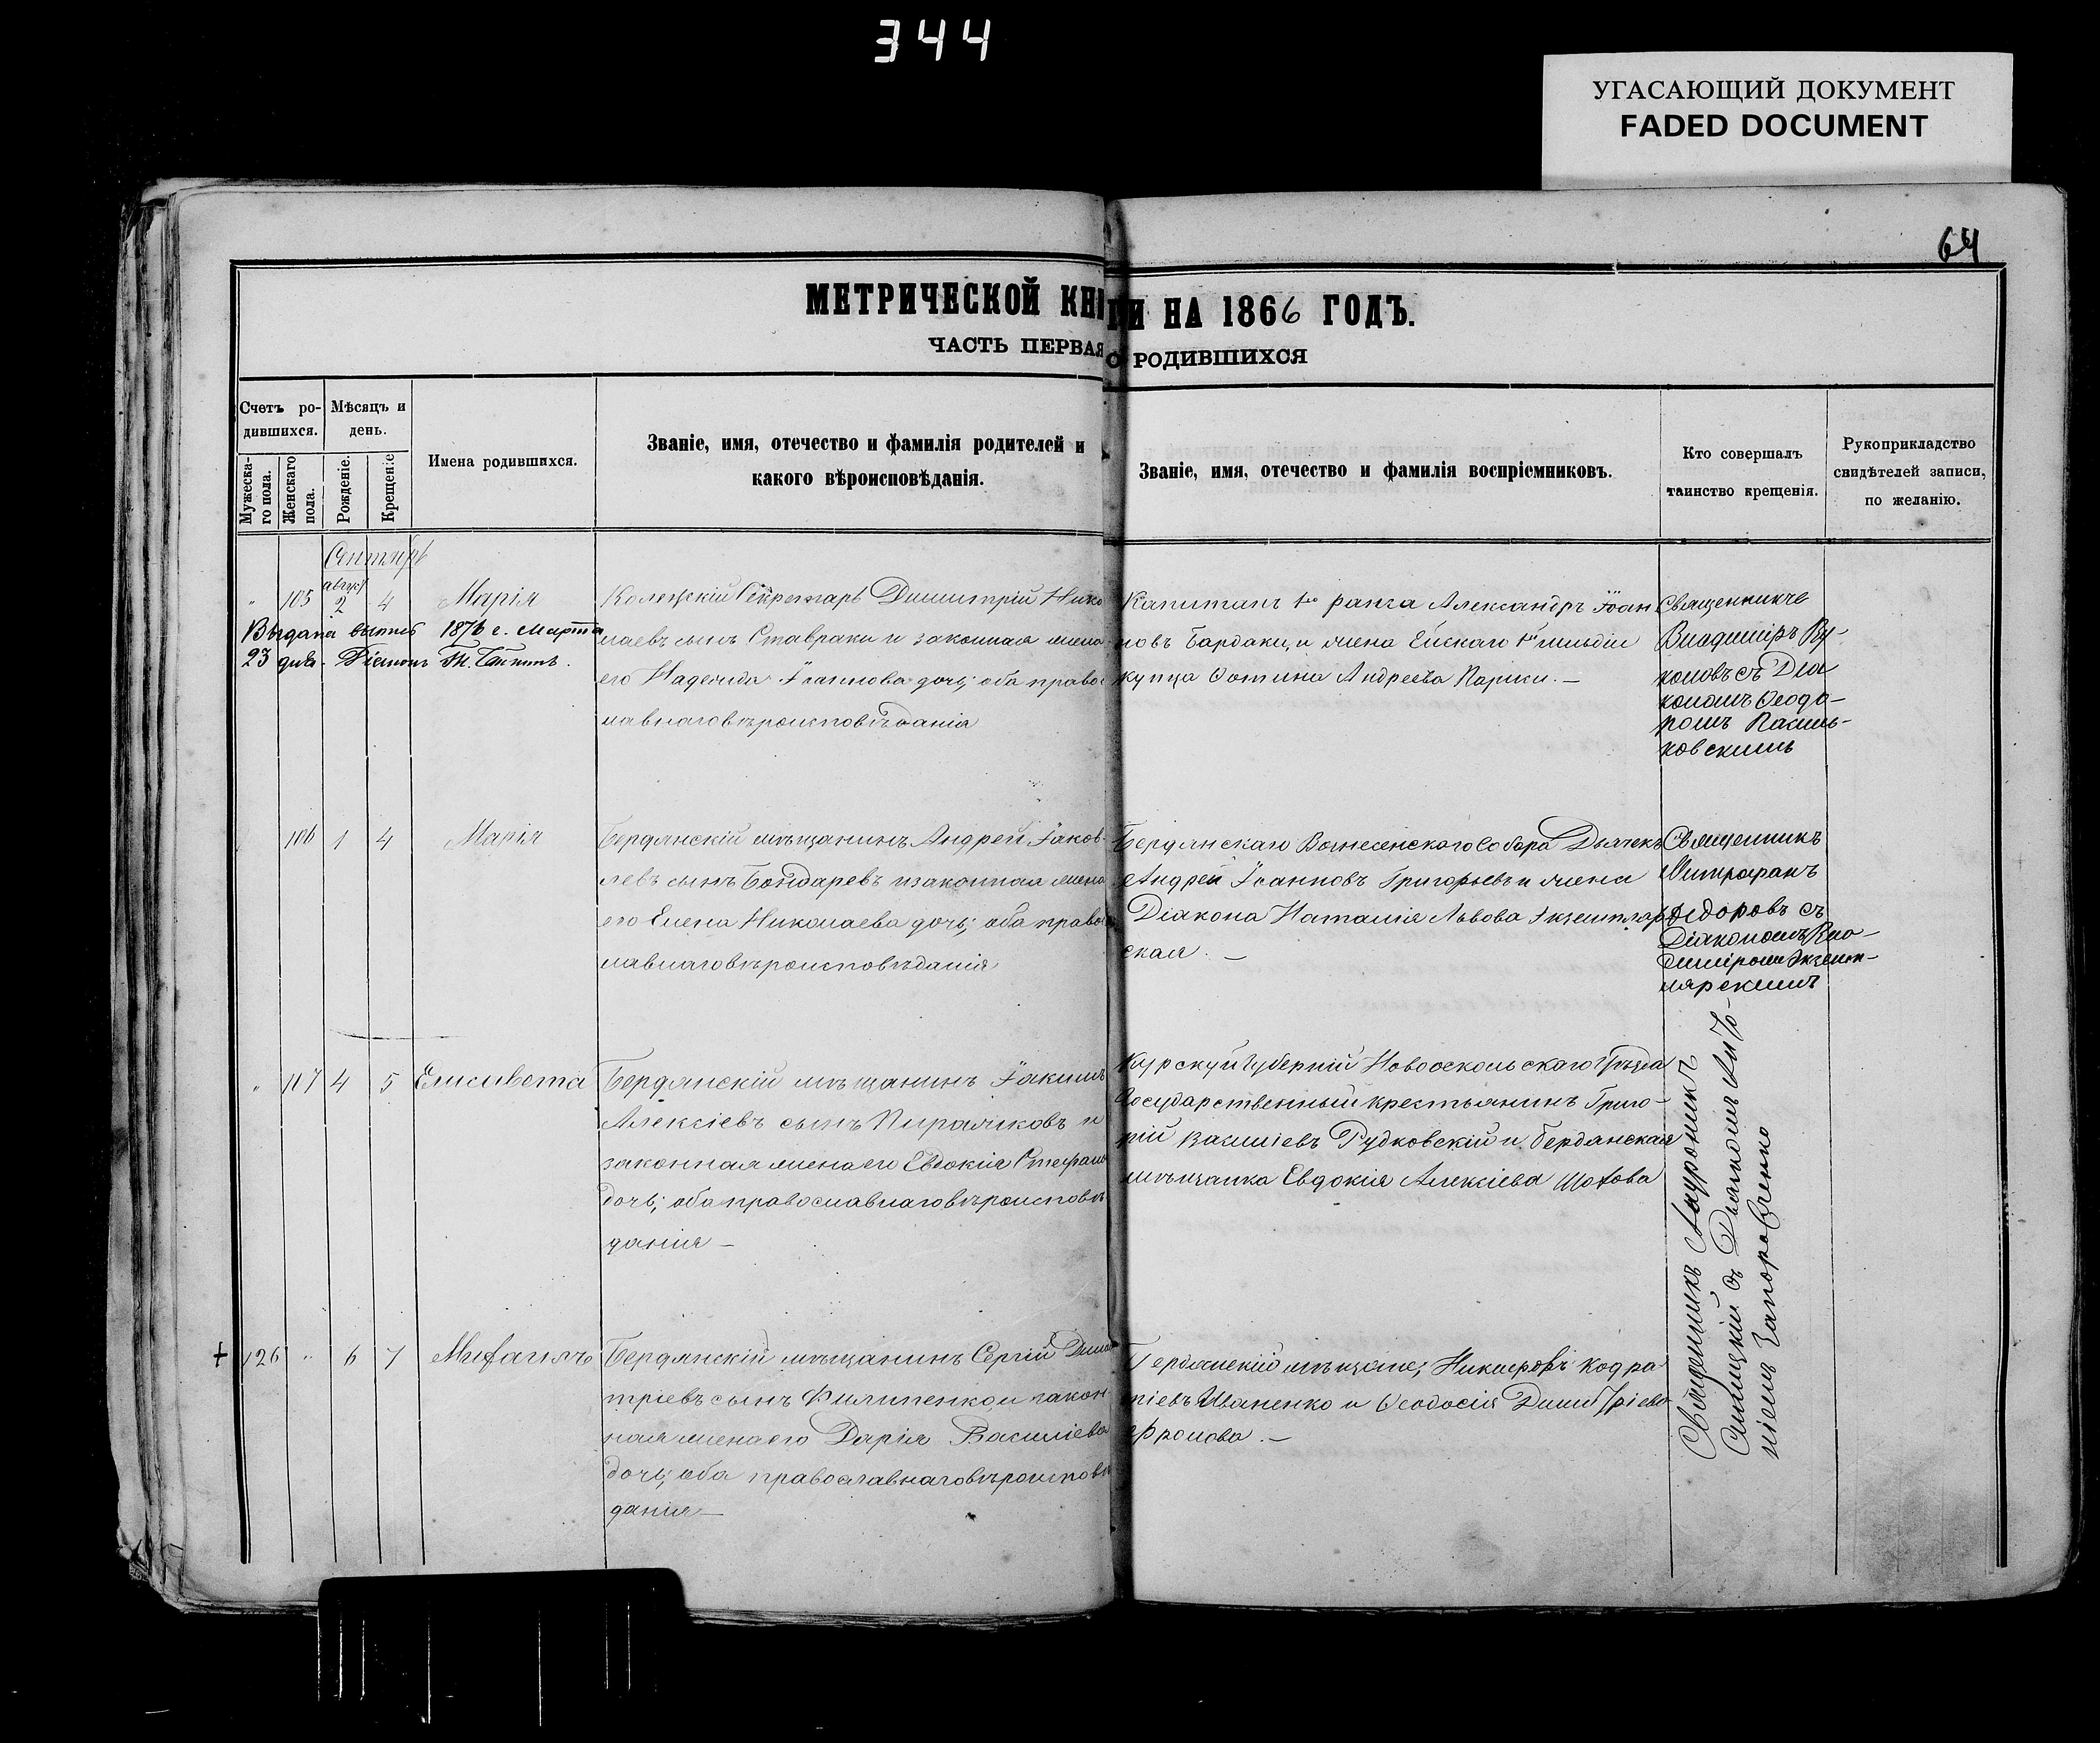 344
УГАСАЮЩИЙ ДОКУМЕНТ
FADED DOCUMENT
64
МЕТРИЧЕСКОЙ КНИГИ НА 1866 ГОДЪ.
ЧАСТЬ ПЕРВАЯ О РОДИВШИХСЯ
Счетъ ро-
дившихся.
Мужеска-
го пола.
Женскаго
пола.
Мѣсяцъ и
день.
Рожденіе.
Крещеніе
Имена родившихся.
Званіе, имя, отечество и фамилія родителей и
какого вѣроисповѣданія.
Званіе, имя, отечество и фамилія воспріемниковъ.
Кто совершалъ
таинство крещенія.
Рукоприкладство
свидѣтелей записи,
по желанію.
Сентябрь
авгус
" 105 2 4 Марія
Выдана выпись 1876 г. Марта
23 дня.
Колежскій Секретарь Димитрій Нико
лаевъ сынъ Ставраки и законная жена
его Надежда Іоаннова дочь; оба правос
лавнаго вѣроисповѣданія
Капитанъ 1го ранга Александръ Іоан
новъ Бардаки, и жена Ейскаго 1й гильдіи
купца Фотина Андреева Парики. —
Священникъ
Владиміръ Ву-
коловъ съ Діа
кономъ Ѳеодо-
ромъ Васинь-
ковскимъ
106 1 4 Марія
Бердянскій мѣщанинъ Андрей Іаков-
левъ сынъ Бондаревъ и законная жена
его Елена Николаева дочь; оба правос
лавнаго вѣроисповѣданія
Бердянскаго Вознесенскаго Собора Дьячекъ
Андрей Іоанновъ Григорьевъ и жена
Діакона Наталія Львова Экземпляр
ская. —
Священникъ
Митрофанъ
Федоровъ съ
Діакономъ Вла-
диміромъ Экземп-
лярскимъ
" 107 4 5 Елисавета
Бердянскій мѣщанинъ Іакимъ
Алексіевъ сынъ Пирожковъ и
законная жена его Евдокія Стефано
дочь; оба православнаго вѣроисповѣ
данія —
Курской Губерніи Новооскольскаго Уѣзда
Государственный крестьянинъ Григо-
рій Василіевъ Рудковскій и Бердянская
мѣщанка Евдокія Алексіева Шохова
† 126 " 6 7 Михаилъ
Бердянскій мѣщанинъ Сергій Дими
тріевъ сынъ Филипенко и закон
ная жена его Дарія Василіева
дочь; оба православнаго вѣроисповѣ
данія —
Бердянскій мѣщане; Никифоръ Кодра
тіевъ Иваненко и Ѳеодосія Димитріева
Фролова. —
Священникъ
съ Діакономъ
Запорощенко